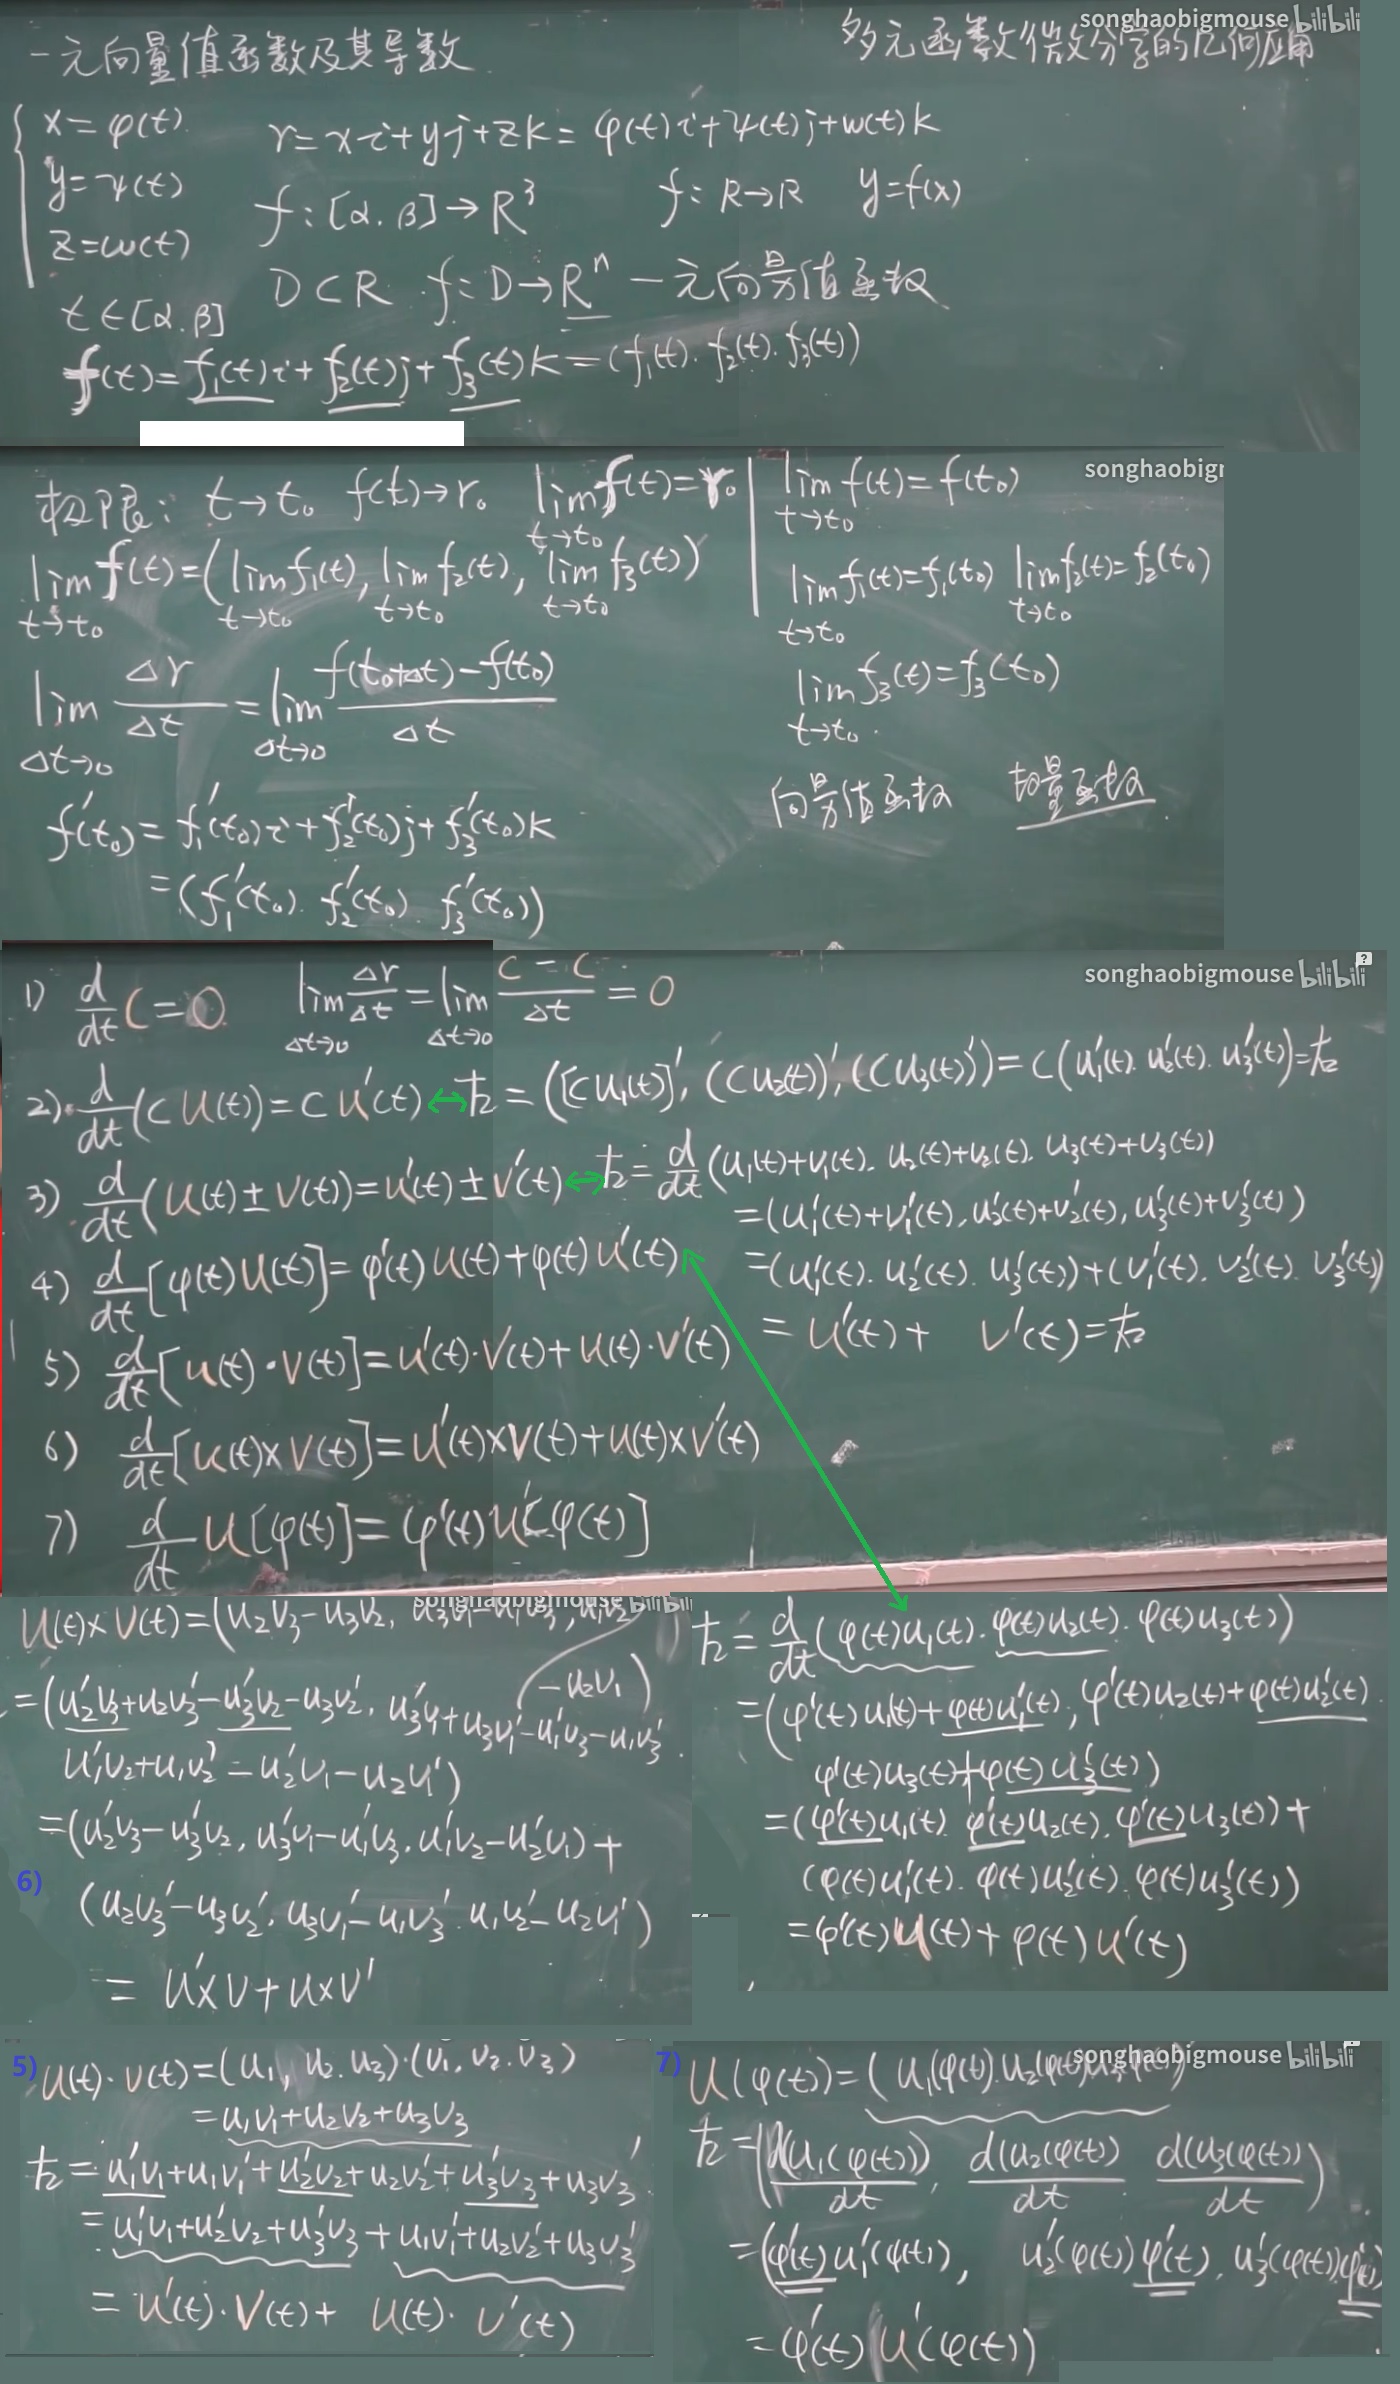 一元向量值函数及其导数
多元函数微分学的几何应用
songhaobigmouse bilibili
x=φ(t)
y=ψ(t)
z=ω(t)
t∈[α.β]
r=xi+yj+zk=φ(t)i+ψ(t)j+w(t)k
f:[α.β]→R³ f:R→R y=f(x)
D⊂R f:D→Rⁿ 一元向量值函数
f(t)=f₁(t)i+f₂(t)j+f₃(t)k=(f₁(t).f₂(t).f₃(t))
songhaobig
极限: t→t₀ f(t)→r₀ lim f(t)=r₀
t→t₀
lim f(t)=(lim f₁(t), lim f₂(t), lim f₃(t))
t→t₀ t→t₀ t→t₀ t→t₀
lim Δr/Δt = lim (f(t₀+Δt)-f(t₀))/Δt
Δt→0 Δt→0
f'(t₀)=f₁'(t₀)i+f₂'(t₀)j+f₃'(t₀)k
=(f₁'(t₀).f₂'(t₀).f₃'(t₀))
lim f(t)=f(t₀)
t→t₀
lim f₁(t)=f₁(t₀) lim f₂(t)=f₂(t₀)
t→t₀ t→t₀
lim f₃(t)=f₃(t₀)
t→t₀.
向量值函数 数量函数
songhaobigmouse bilibili
?
1) d/dt C=0 lim Δr/Δt = lim (C-C)/Δt = 0
Δt→0 Δt→0
2) d/dt(Cu(t))=Cu'(t) ↔ 左=([Cu₁(t)]',(Cu₂(t))',(Cu₃(t))')=C(u₁'(t).u₂'(t).u₃'(t))=右
3) d/dt(u(t)±v(t))=u'(t)±v'(t) ↔ 左=d/dt(u₁(t)+v₁(t).u₂(t)+v₂(t).u₃(t)+v₃(t))
=(u₁'(t)+v₁'(t),u₂'(t)+v₂'(t),u₃'(t)+v₃'(t))
=(u₁'(t).u₂'(t).u₃'(t))+(v₁'(t).v₂'(t).v₃'(t))
=u'(t)+ v'(t)=右
4) d/dt[φ(t)u(t)]=φ'(t)u(t)+φ(t)u'(t)
5) d/dt[u(t)·v(t)]=u'(t)·v(t)+u(t)·v'(t)
6) d/dt[u(t)×v(t)]=u'(t)×v(t)+u(t)×v'(t)
7) d/dt u[φ(t)]=φ'(t)u'[φ(t)]
songhaobigmouse bilibili
u(t)×v(t)=(u₂v₃-u₃v₂, u₃v₁-u₁v₃, u₁v₂
-u₂v₁)
=(u₂'v₃+u₂v₃'-u₃'v₂-u₃v₂', u₃'v₁+u₃v₁'-u₁'v₃-u₁v₃'.
u₁'v₂+u₁v₂'-u₂'v₁-u₂v₁')
=(u₂'v₃-u₃'v₂, u₃'v₁-u₁'v₃, u₁'v₂-u₂'v₁)+
6)
(u₂v₃'-u₃v₂'. u₃v₁'-u₁v₃'. u₁v₂'-u₂v₁')
=u'×v+u×v'
左=d/dt(φ(t)u₁(t).φ(t)u₂(t).φ(t)u₃(t))
=(φ'(t)u₁(t)+φ(t)u₁'(t), φ'(t)u₂(t)+φ(t)u₂'(t).
φ'(t)u₃(t)+φ(t)u₃'(t))
=(φ'(t)u₁(t).φ'(t)u₂(t).φ'(t)u₃(t))+
(φ(t)u₁'(t).φ(t)u₂'(t).φ(t)u₃'(t))
=φ'(t)u(t)+φ(t)u'(t)
5) u(t)·v(t)=(u₁,u₂.u₃)·(v₁,v₂.v₃)
=u₁v₁+u₂v₂+u₃v₃
左=u₁'v₁+u₁v₁'+u₂'v₂+u₂v₂'+u₃'v₃+u₃v₃'
=u₁'v₁+u₂'v₂+u₃'v₃+u₁v₁'+u₂v₂'+u₃v₃'
=u'(t)·v(t)+u(t)·v'(t)
songhaobigmouse bilibili
7) u(φ(t))=(u₁(φ(t)).u₂(φ(t)).u₃(φ(t)))
左=(d(u₁(φ(t)))/dt, d(u₂(φ(t)))/dt d(u₃(φ(t)))/dt)
=(φ'(t)u₁'(φ(t)), u₂'(φ(t))φ'(t), u₃'(φ(t))φ'(t))
=φ'(t)u'(φ(t))